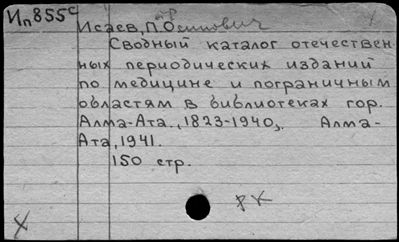 Ип855с
Исаев, П. Осипович
Сводный каталог отечествен-
ных периодических изданий
по медицине и пограничным
областям в библиотеках гор.
Алма-Ата., 1823-1940,. Алма-
Ата, 1941.
150 стр.